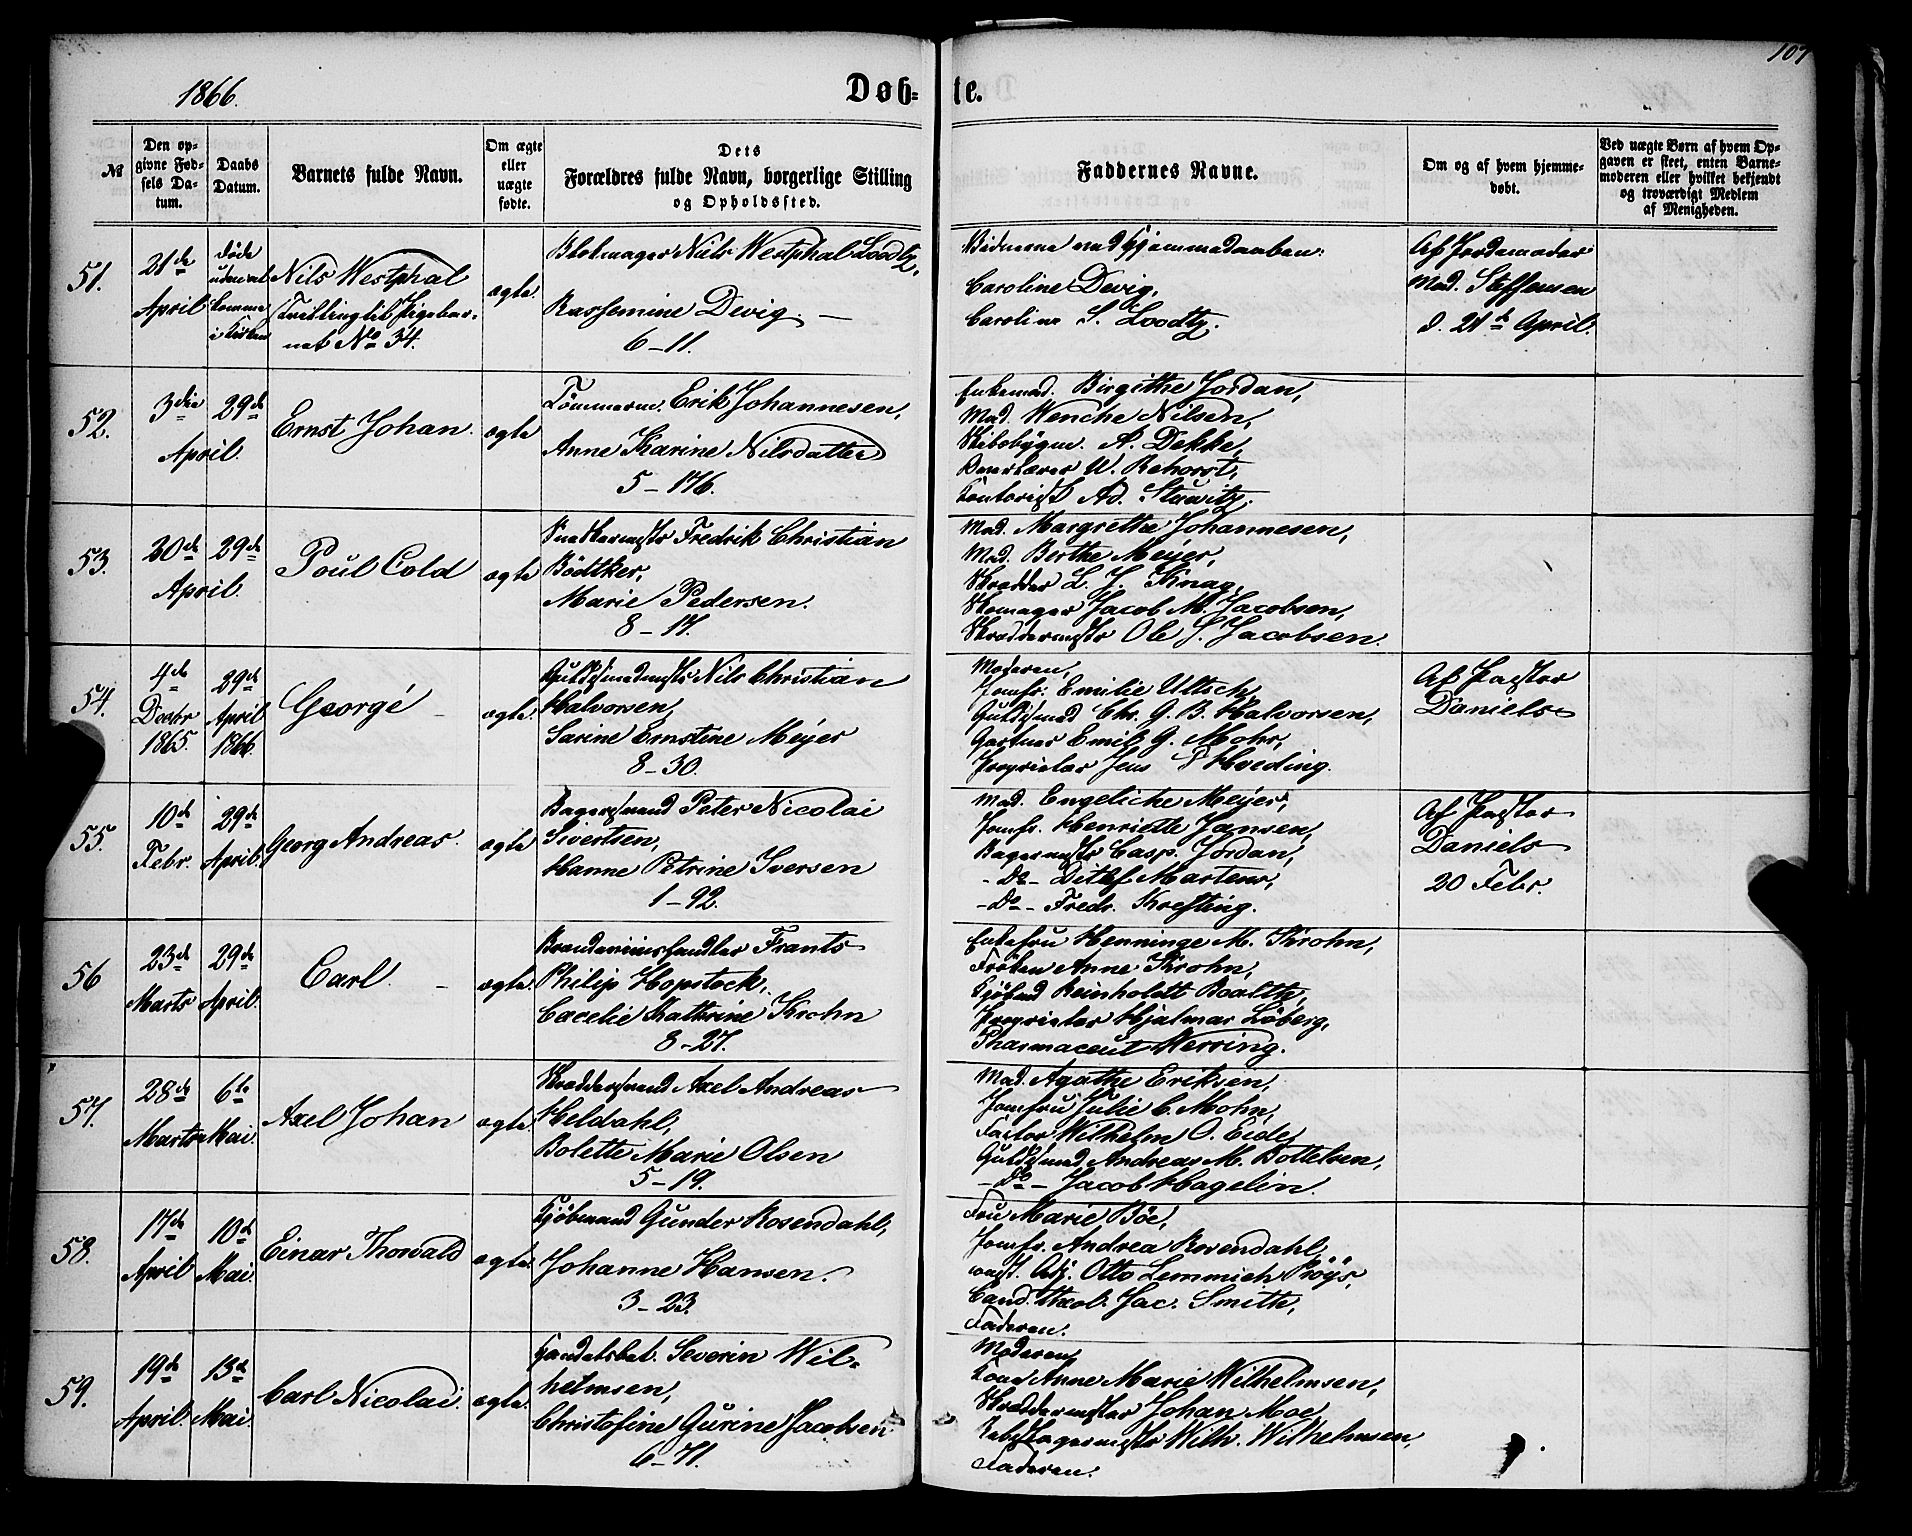 107
1866.
Døb-
te.
№
Den op-
givne Fød-
sels Da-
tum.
Daabs
Datum.
Barnets fulde Navn.
Om ægte
eller
uægte
fødte.
Dets
Forældres fulde Navn, borgerlige Stilling
og Opholdssted.
Faddernes Navne.
Om og af hvem hjemme-
døbt.
Ved uægte Børn af hvem Op-
gaven er skeet, enten Barne-
moderen eller hvilket bekjendt
og troværdigt Medlem
af Menigheden.
51.
21de
April
døde
uden at
komme
i Kirken
Nils Westphal
(Tvilling til Pigebar-
net No 34.
ægte.
Blokmager Niels Westphal Loodtz,
Rassemine Devig. —
6–11.
Vidnerne ved Hjemmedaaben:
Caroline Devig,
Caroline S. Loodtz.
Af Jordemoder
Mad. Steffensen
d. 21de April.
52.
3die
April
29de
April.
Ernst Johan.
ægte
Tømmerm. Erik Johannesen,
Anne Karine Nilsdatter
5–176.
Enkemad. Birgithe Jordan,
Mad. Wenche Nilsen,
Skibsbygm. A. Dekke,
W. Rehorst,
Contorist Ad. Stuwitz.
53.
20de
April
29de
April.
Poul Cold
ægte
Snedkermstr Fredrik Christian
Bödtker,
Marie Pedersen.
8–17.
Mad. Margrethe Johannesen,
Mad. Berthe Meyer,
Skrædder L. J. Knag,
Skomager Jacob M. Jacobsen,
Skræddermstr Ole J. Jacobsen.
54.
4de
Decbr
1865.
29de
April
1866.
Georgé
ægte.
Guldsmedmstr Nils Christian
Halvorsen,
Sarine Ernstine Meyer
8–30.
Moderen,
Jomfr: Emilie Ultsch,
Guldsmed Chr. G. B. Halvorsen,
Gartner Emil G. Mohr,
Proprietær Jens P Hveding.
Af Pastor
Daniels
55.
10de
Febr.
29de
April.
Georg Andreas.
ægte
Bagersvend Peter Nicolai
Sivertsen,
Hanne Petrine Iversen
1–92.
Mad. Engeliche Meyer,
Jomfr. Henriette Jansen,
Bagermstr Casp. Jordan,
– Do – Ditlef Martens,
– Do – Fredr. Krefting.
Af Pastor
Daniels
20 Febr.
56
23de
Marts
29de
April.
Carl. –
ægte.
Brændeviinshandler Frants
Philip Hopstock,
Cacelie Kathrine Krohn
8–27.
Enkefru Henninge M. Krohn,
Frøken Anne Krohn,
Kjøbmd Reinholdt Boalth,
Proprietær Hjalmar Löberg,
Pharmaceut Werring.
57.
28de
Marts
6te
Mai.
Axel Johan
ægte.
Skræddersvend Axel Andreas
Heldahl,
Bolette Marie Olsen
5–19.
Mad. Agathe Eriksen,
Jomfru Julie C. Mohn,
Factor Wilhelm O. Eide,
Guldsmed Andreas M. Bottelsen,
– Do – Jacob Hagelin.
58.
17de
April
10de
Mai.
Einar Thorvald
ægte.
Kjøbmand Gunder Rosendahl,
Johanne Hansen.
3–23.
Fru Marie Böe,
Jomfr. Andrea Rosendahl,
const. Adj. Otto Lemmich Pröys,
Cand. theol. Jac. Smith,
Faderen.
59.
19de
April.
13de
Mai.
Carl Nicolai.
ægte.
Handelsbet. Severin Wil-
helmsen,
Christofine Gurine Jacobsen.
6–71.
Moderen,
Kone Anne Marie Wilhelmsen,
Skræddermester Johan Moe,
Rebslagermstr Wilh. Wilhelmsen,
Faderen.